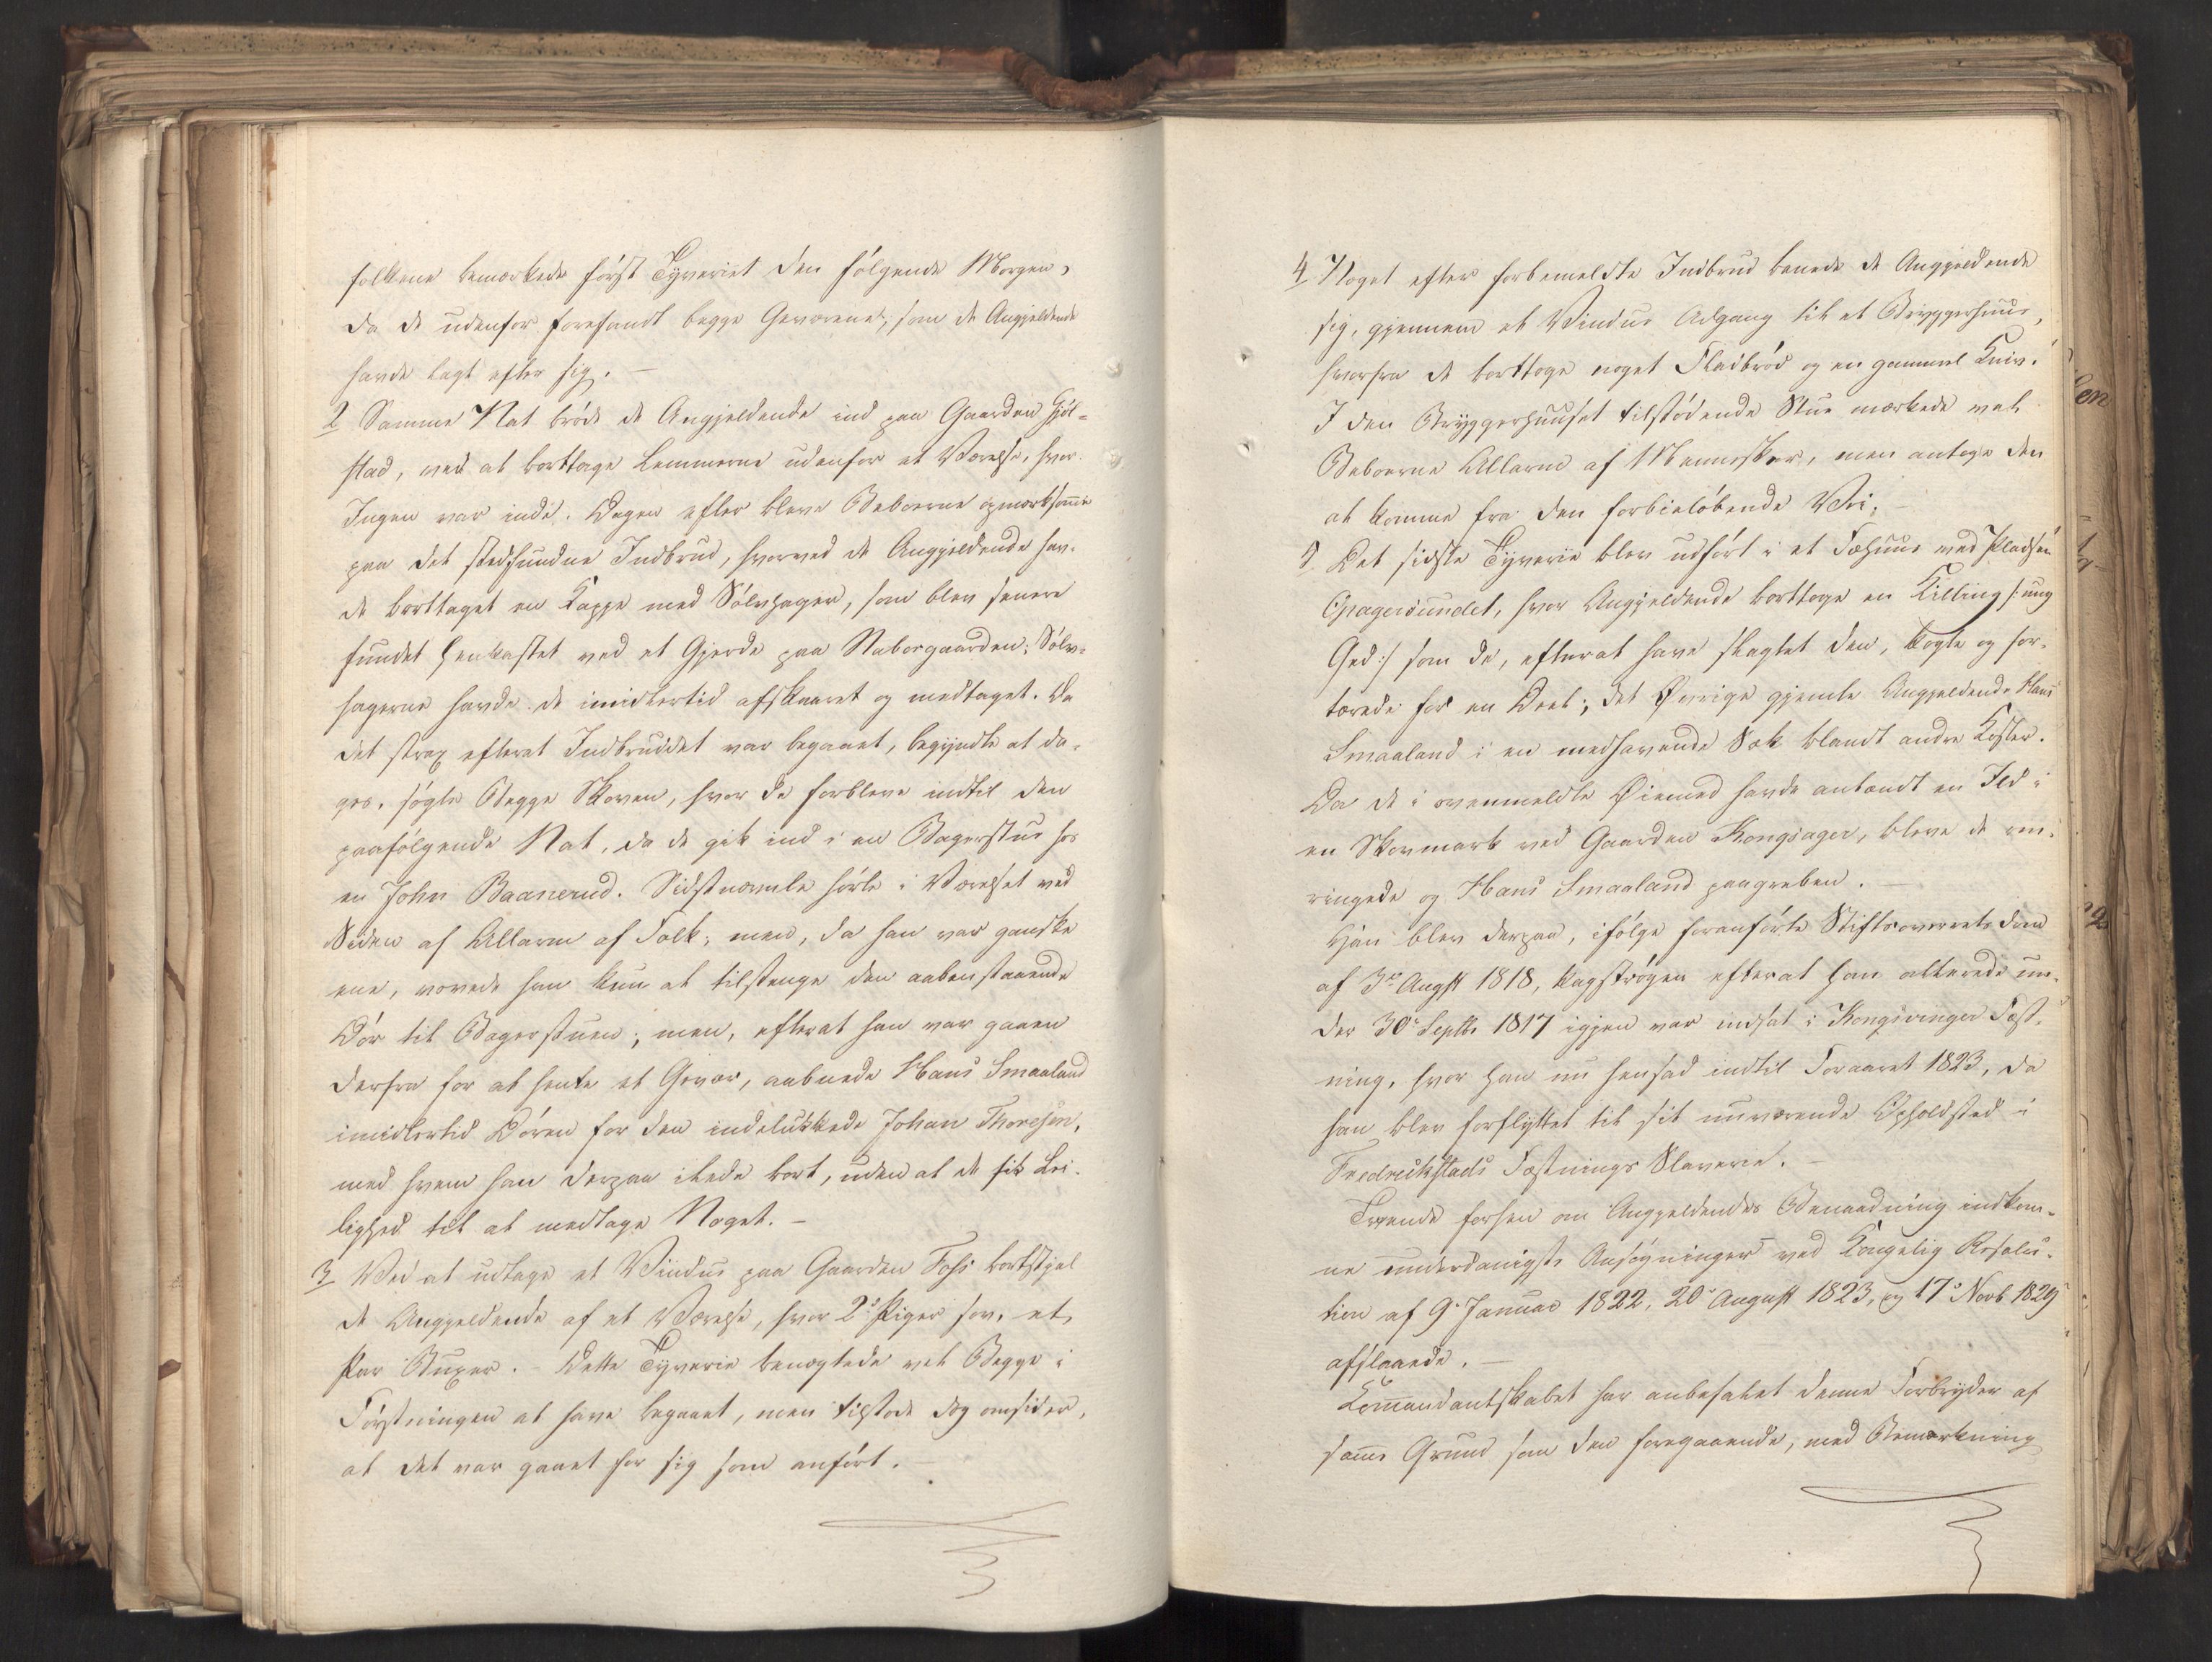 folkene bemærkede først Tyveriet den følgende Morgen,
da de udenfor forefandt begge Geværene, som de Angjeldende
havde lagt efter sig. –
2 Samme Nat brøde de Angjeldende ind paa Gaarden Gjøl-
stad, ved at borttage Lemmerne udenfor et Værelse, hvor
Ingen var inde. Dagen efter bleve Beboerne opmærksomme
paa det stedfundne Indbrud, hvorved de Angjeldende hav-
de borttaget en Kappe med Sølvhager, som blev senere
fundet henkastet ved et Gjerde paa Naborgaarden; Sølv-
hagerne havde de imidlertid afskaaret og medtaget. Da
det strax efterat Indbruddet var begaaet, begyndte at da-
ges, søgte Begge Skoven, hvor de forbleve indtil den
paafølgende Nat, da de gik ind i en Bagerstue hos
en John Baanerud. Sidstnævnte hørte i Værelset ved
Siden af Allarm af Folk; men, da han var ganske
ene, vovede han kun at tilstænge den aabenstaaende
Dør til Bagerstuen; men, efterat han var gaaen
derfra for at hente et Gevær, aabnede Hans Smaaland
imidlertid Døren for den indelukkede Johan Thoresen,
med hvem han derpaa ilede bort, uden at de fik Lei-
lighed til at medtage Noget. –
3 Ved at udtage et Vindue paa Gaarden Foss bortstjal
de Angjeldende af et Værelse, hvor 2de Piger sov, et
Par Buxer. – Dette Tyverie benægtede vel Begge i
Førstningen at have begaaet, men tilstode dog omsider,
at det var gaaet for sig som anført.
4 Noget efter forbemeldte Indbrud banede de Angjeldende
sig, gjennem et Vindue Adgang til et Bryggerhuus,
hvorfra de borttoge noget Fladbrød og en gammel Kniv.
I den Bryggerhuuset tilstødende Stue mærkede vel
Beboerne Allarm af Mennesker, men antoge den
at komme fra den forbieløbende Vei. –
5 Det sidste Tyverie blev udført i et Fæhuus ved Pladsen
Opagersundet, hvor Angjeldende borttoge en Killing /: ung
Ged :/ som de, efterat have slagtet den, kogte og for-
tærede for en Deel; det Øvrige gjemte Angjeldende Hans
Smaaland i en medhavende Sæk blandt andre Koster.
Da de i ovenmeldte Øiemed havde antændt en Ild i
en Skovmark ved Gaarden Kongsager, bleve de om-
ringede og Hans Smaaland paagreben. –
Han blev derpaa, ifølge foranførte Stiftsoverrets Dom
af 3de Augst 1818, kagstrøgen efterat han allerede un-
der 30te Septbr 1817 igjen var indsat i Kongsvinger Fæst-
ning, hvor han nu hensad indtil Foraaret 1823, da
han blev forflyttet til sit nuværende Opholdsted i
Fredrikstads Fæstnings Slaverie. –
Trende forhen om Angjeldendes Benaadning indkom-
ne underdanigste Ansøgninger ved Kongelig Resolu-
tion af 9de Januar 1822, 20de August 1823, og 17de Novb 1829
afslaaede. –
Kommandantskabet har anbefalet denne Forbryder af
samme Grund som den foregaaende, med Bemærkning